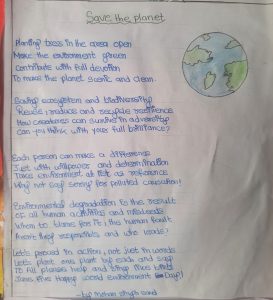 Save the planet
Planting trees in the area open
Make the environment green
contribute with full devotion
To make the planet scenic and clean.
Saving ecosystem and biodiversity
Reuse reduce and recycle resilience
How creatures can survive in adversity
Can you think with your full brilliance?
Each person can make a difference
Just with willpower and determination
Take environment at its as reference
Why not say sorry for polluted causation!
Environmental degradation is the result
of all human activities and misdeeds
When to blame for it, this human fault
Aren't they responsible and who leads?
Let's proceed in action, not just in words
Let's plant one plant by each and say
To all please help and
June five Happy word Environment Day!!